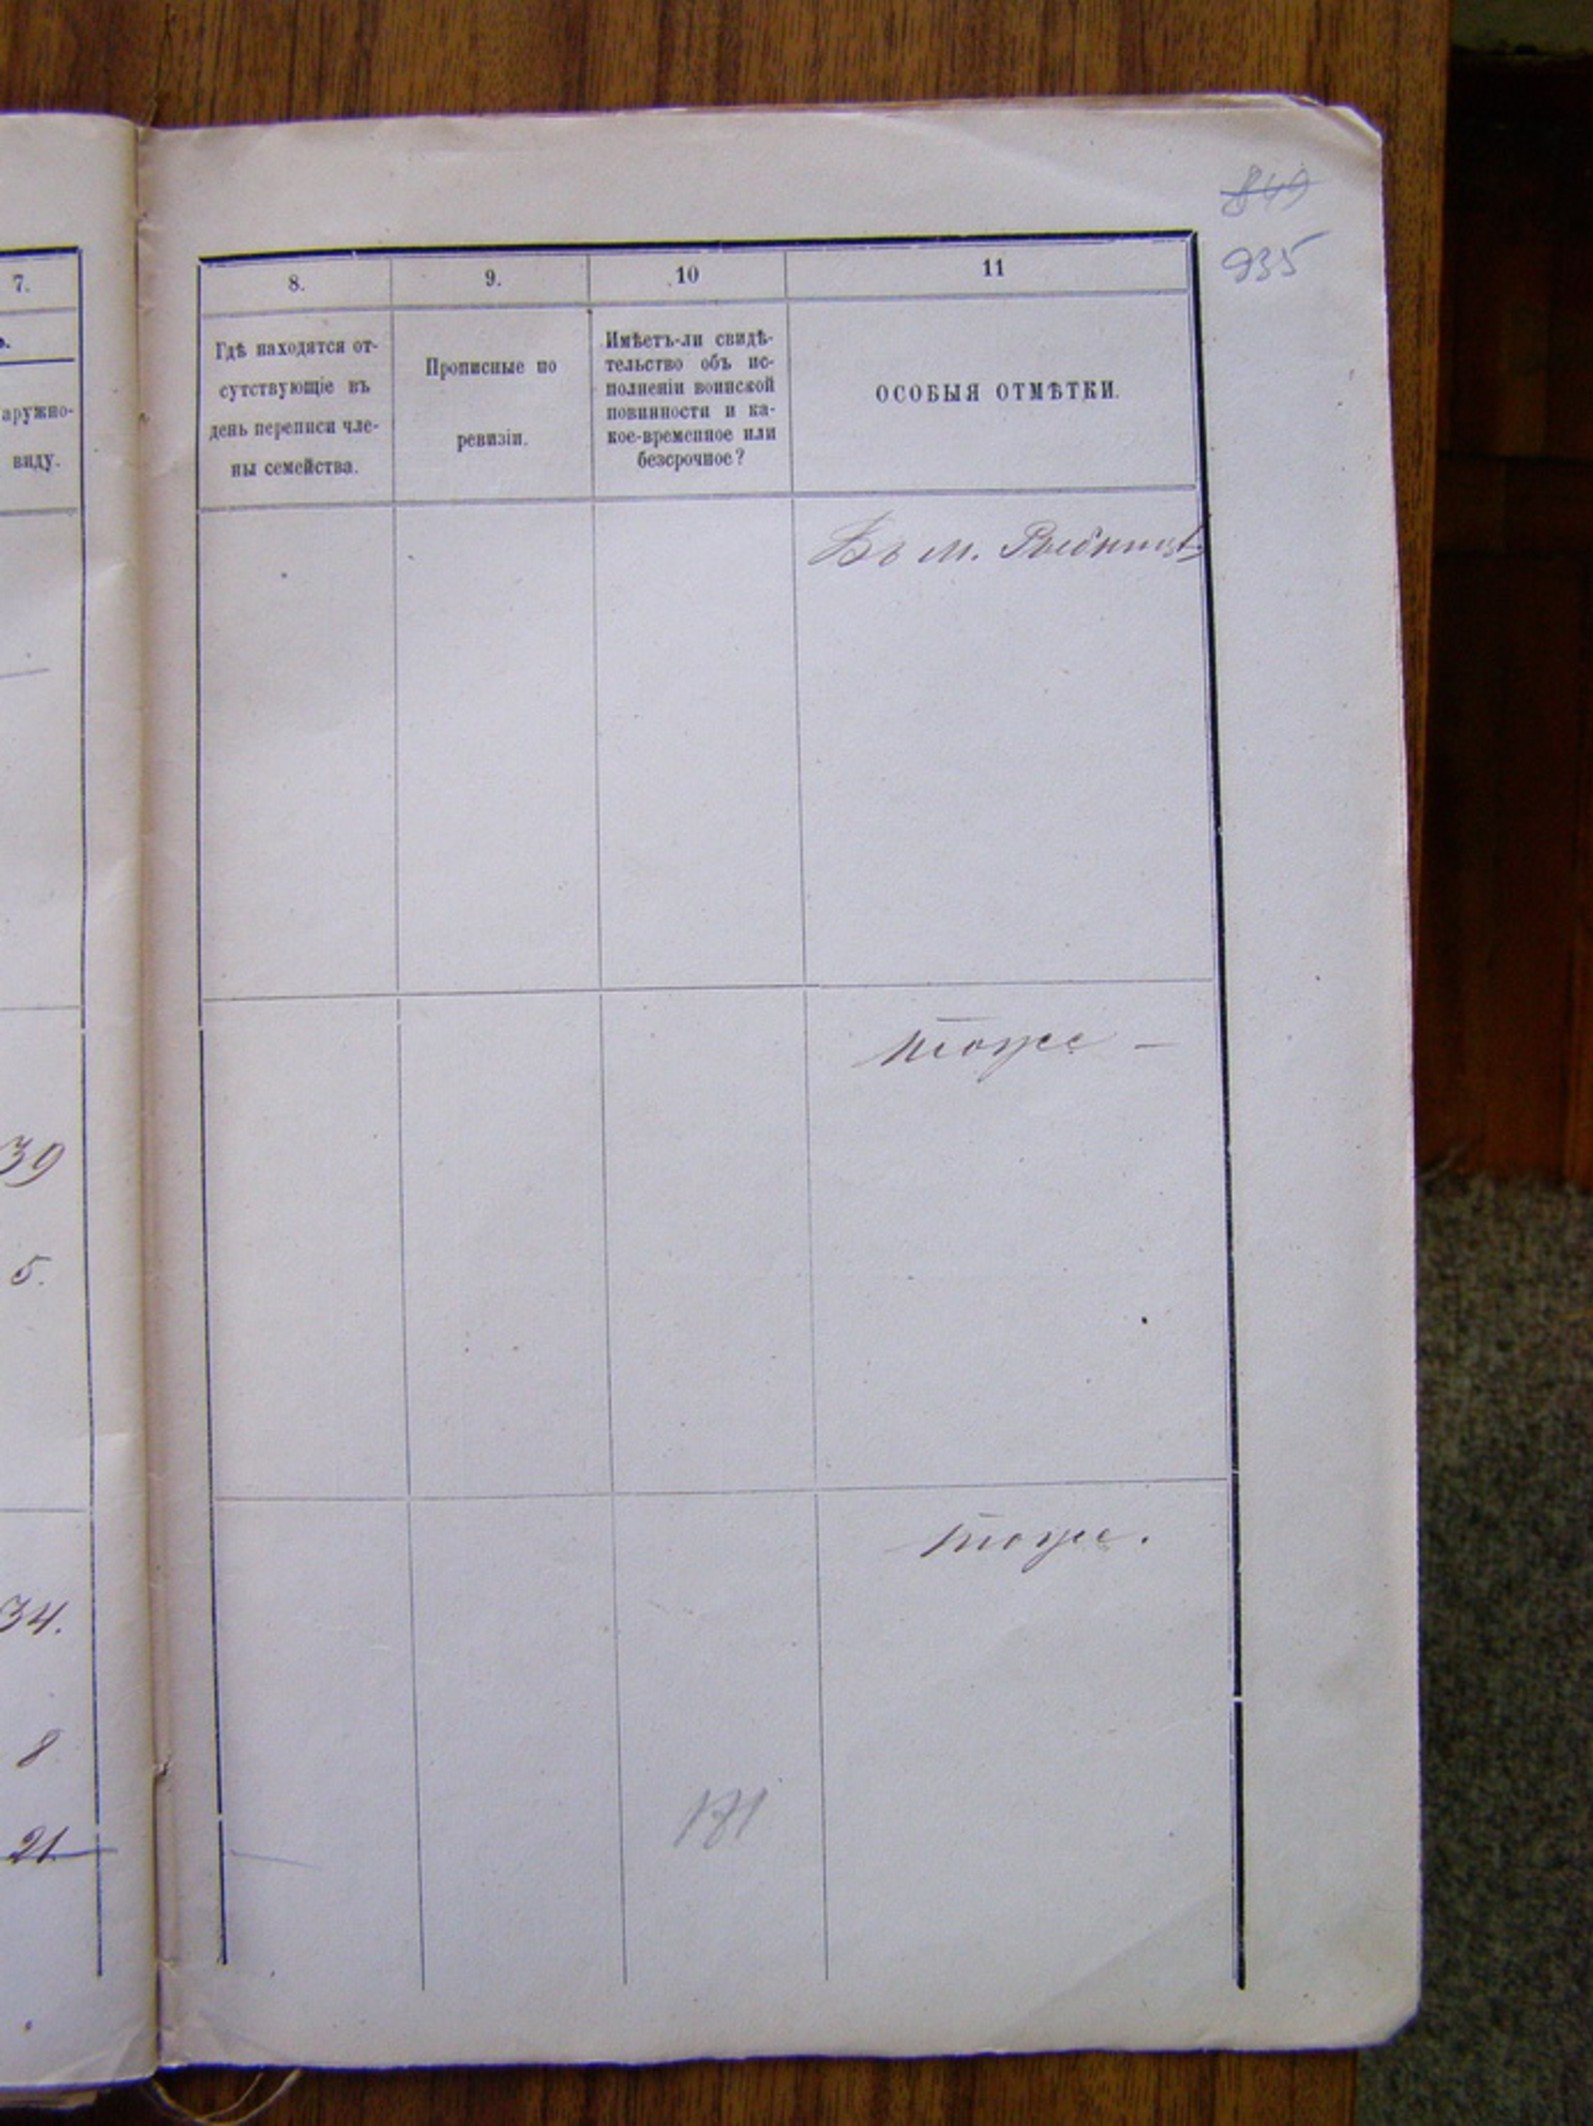 849
935
7.
8.
9.
10
11
ь.
аружно-
виду.
Гдѣ находятся от-
сутствующіе въ
день переписи чле-
ны семейства.
Прописные по
ревизіи.
Имѣетъ-ли свидѣ-
тельство объ ис-
полненіи воинской
повинности и ка-
кое-временное или
безсрочное?
ОСОБЫЯ ОТМѢТКИ.
Въ м. Рыбницѣ
тоже —
39
5.
тоже.
34.
8
21